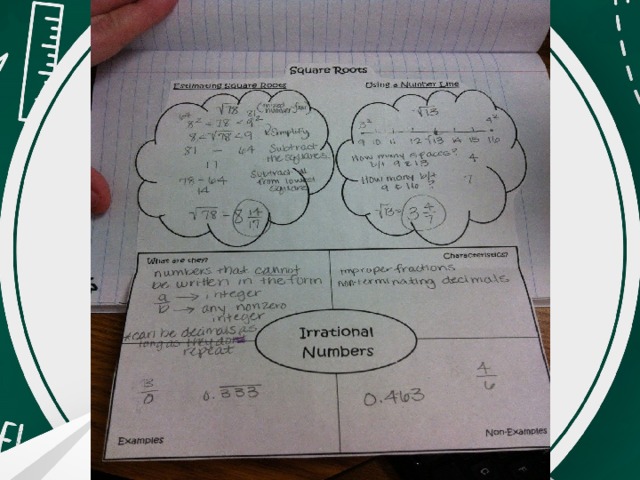 Square Roots
Estimating Square Roots
√78
8² < 78 < 9²
64
81
8 < √78 < 9
Simplify
81 - 64
Subtract
the squares.
17
78 - 64
Subtract
from lowest
square
14
√78 = 8 14/17
Using a Number Line
√13
3²
4²
9 10 11 12 √13 14 15 16
How many spaces?
b/t 9 & 13
4
How many b/t
9 & 16 ?
7
√13 = 3 4/7
What are they?
numbers that cannot
be written in the form
a/b
→ integer
→ any nonzero
integer
*can be decimals as
long as they don't
repeat
Characteristics?
improper fractions
nonterminating decimals
Irrational
Numbers
3/0
0.333
Examples
0.463
4/6
Non-Examples